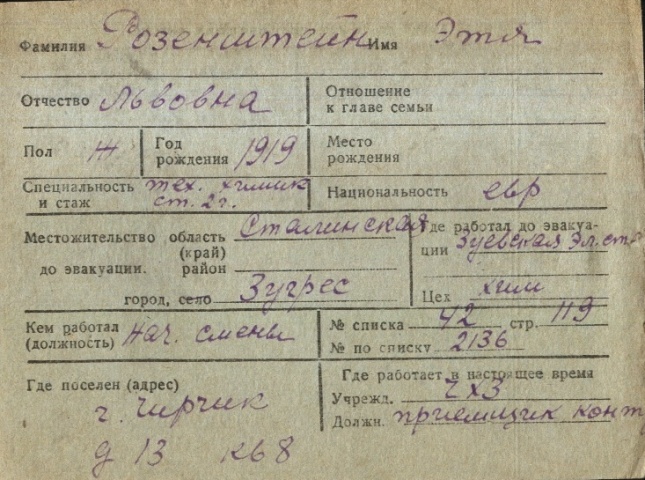 Фамилия Розенштейн Имя Этя
Отчество Львовна Отношение
к главе семьи
Пол Ж Год
рождения 1919 Место
рождения
Специальность тех. химик
и стаж ст. 2г. Национальность евр
Местожительство область Сталинская
(край)
до эвакуации. район
город, село Зугрес
Где работал до эвакуа-
ции Зуевская Эл. ст
Цех хим
Кем работал
(должность) нач. смены
№ списка 42 стр. 119
№ по списку 2136
Где поселен (адрес)
г. Чирчик
д 13 кв 8
Где работает в настоящее время
Учрежд. ЧХЗ
Должн. приемщик конт